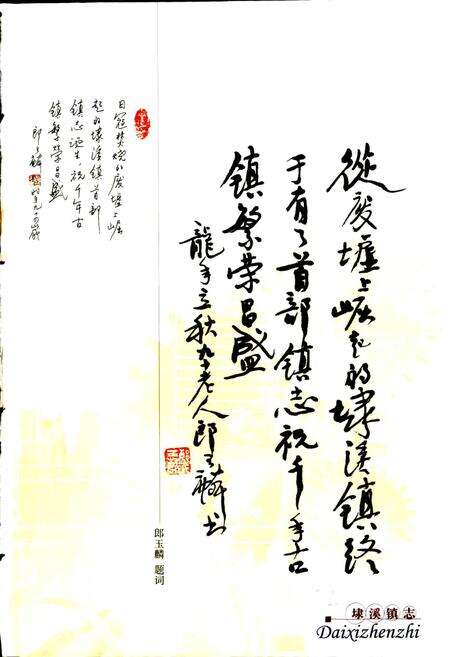 從废墟上崛起的埭溪镇终
于有了首部镇志祝千年古
镇繁荣昌盛
龍年立秋九十老人郎玉麟书
日寇焚烧的废墟上崛
起的埭溪镇首部
镇志诞生，祝千年古
镇繁荣昌盛
郎玉麟
郎玉麟 题词
埭溪镇志
Daixizhenzhi